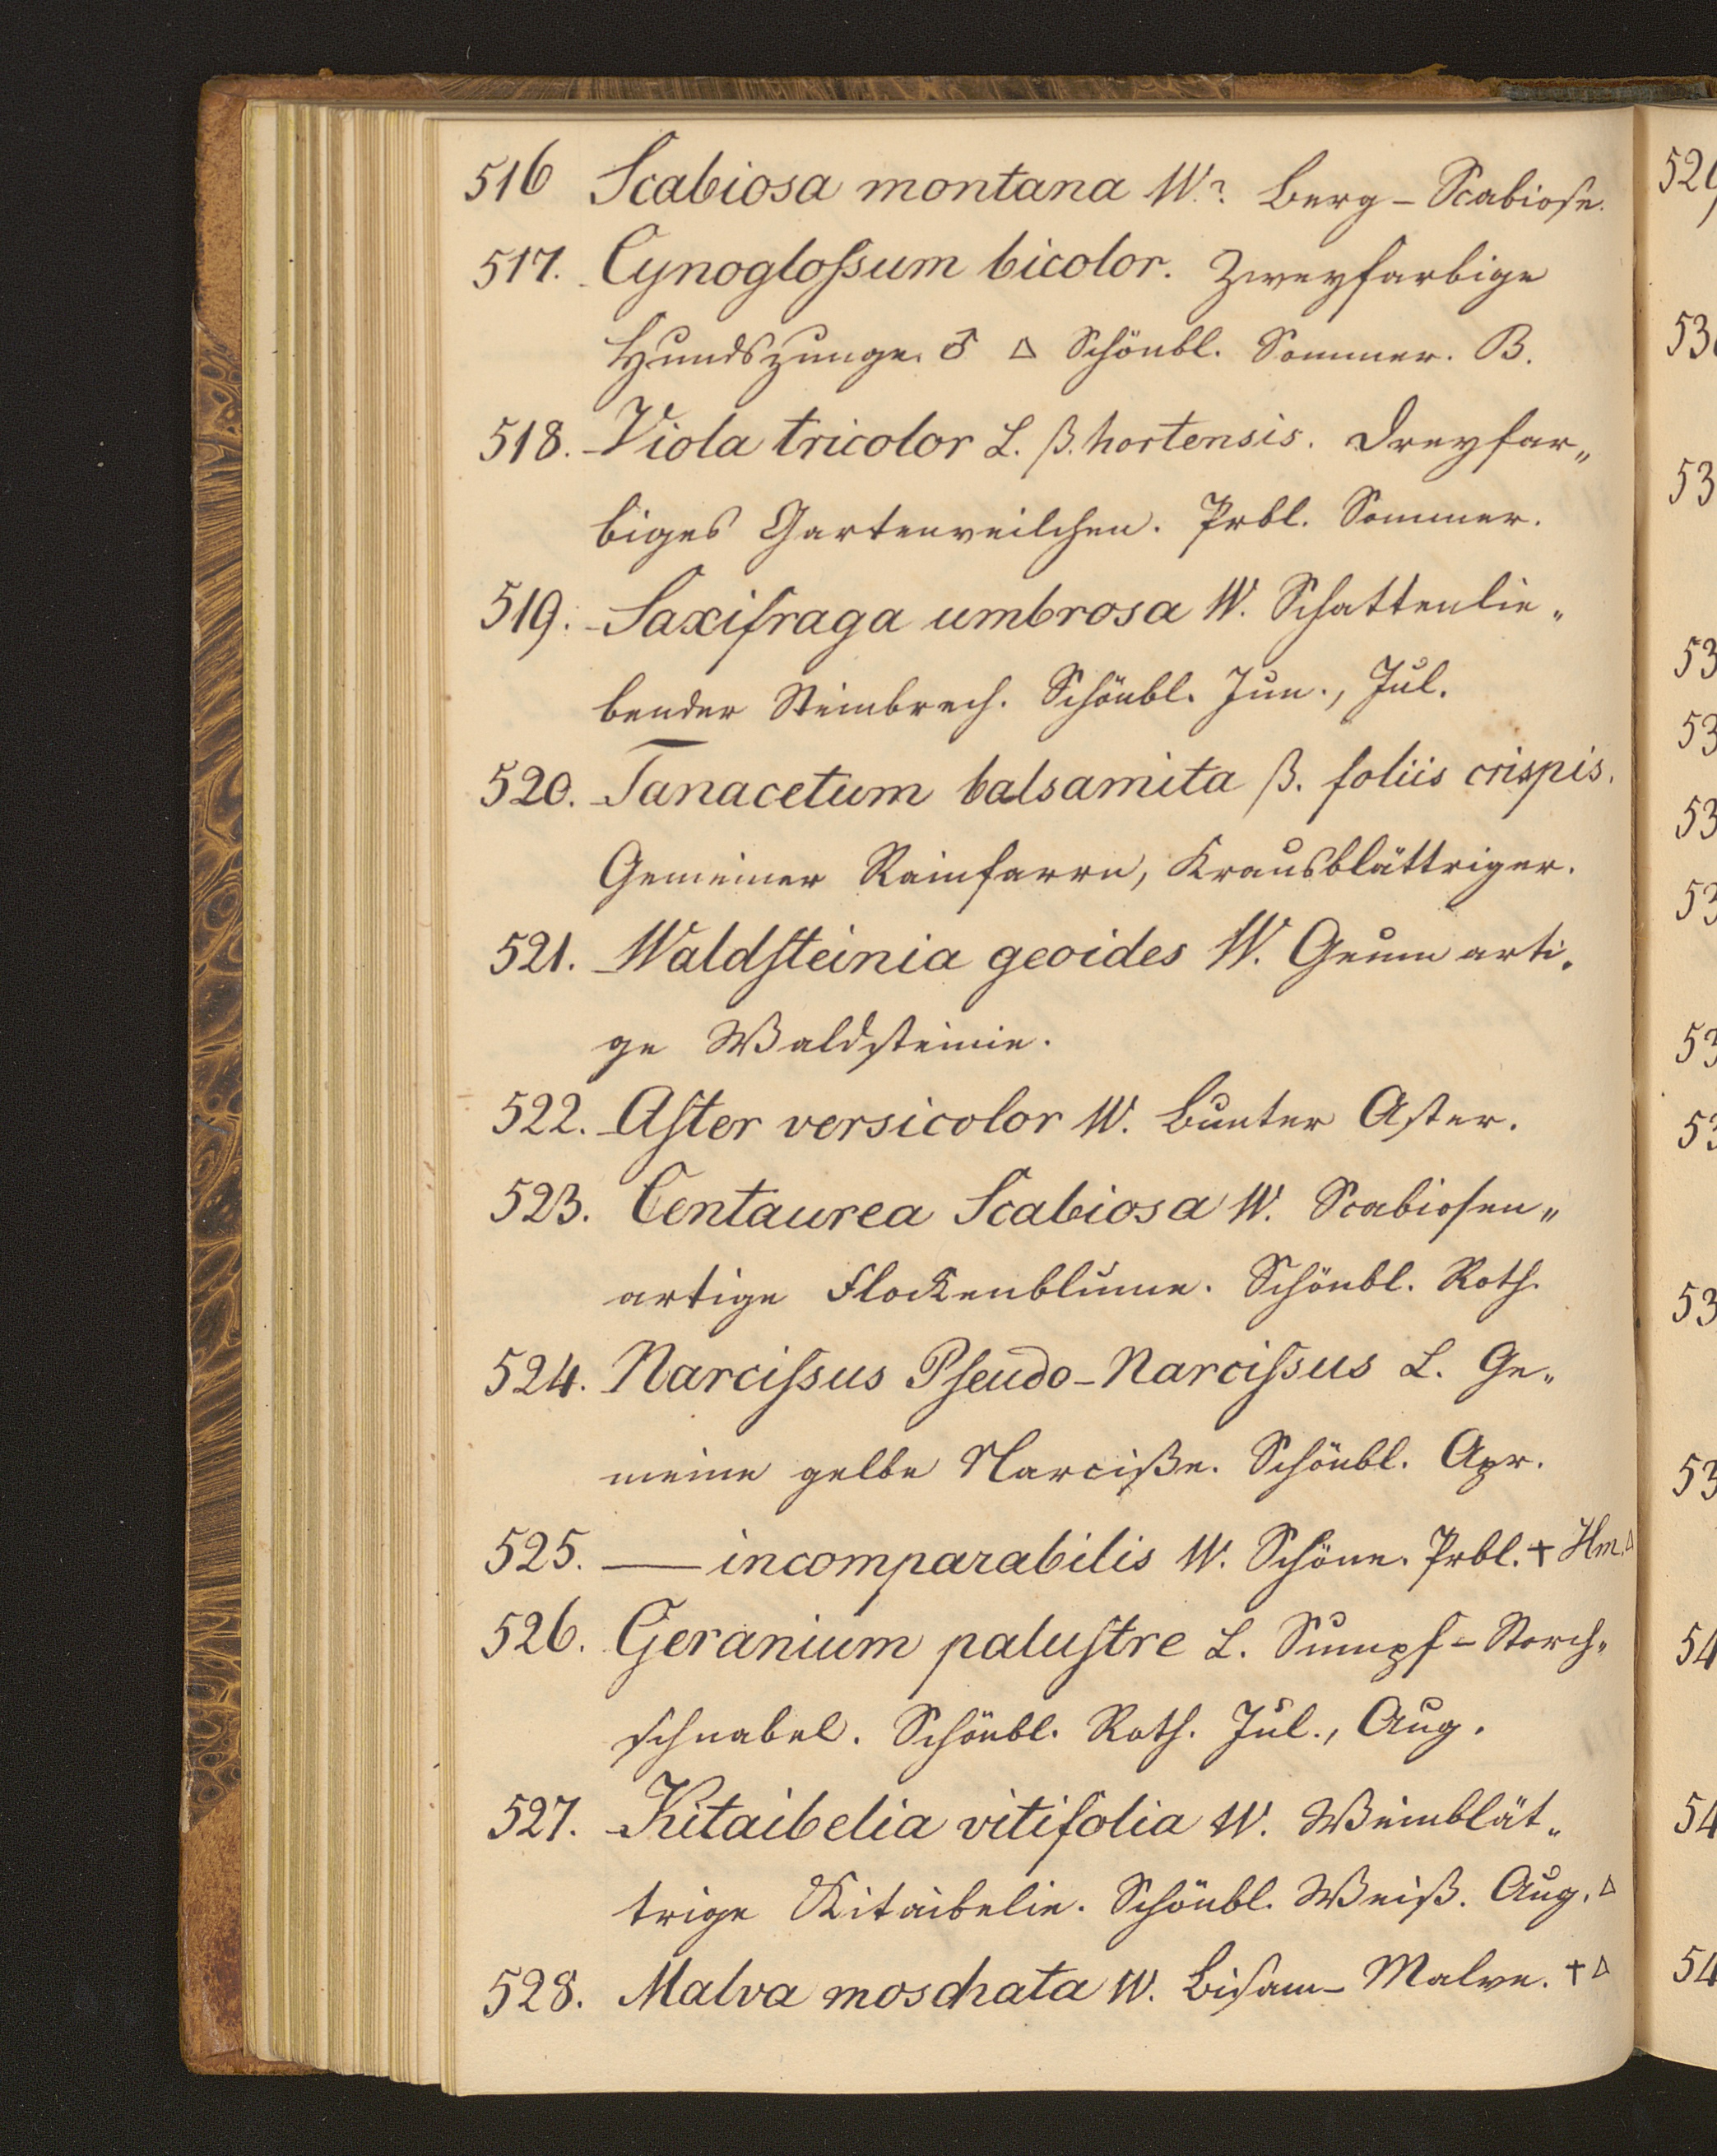 516 Scabiosa montana W.? Berg-Scabiose.
517. Cynogloſsum bicolor. Zweyfarbige
Hundszunge. ♂ △ Schönbl. Sommer. B.
518. Viola tricolor L. β. hortensis. Dreyfar„
biges Gartenveilchen. Prbl. Sommer.
519. Saxifraga umbrosa W. Schattenlie„
bender Steinbrech. Schönbl. Jun., Jul.
520. Tanacetum balsamita β. foliis crispis.
Gemeiner Rainfarrn, Krausblättriger.
521. Waldſteinia geoides W. Geum arti„
ge Waldsteinie.
522. Aſter versicolor W. Bunter Aster.
523. Centaurea Scabiosa W. Scabiosen„
artige Flockenblume. Schönbl. Roth.
524. Narciſsus Pſeudo-Narciſsus L. Ge„
meine gelbe Narciße. Schönbl. Apr.
525. — incomparabilis W. Schöne. Prbl. + Hm. △
526. Geranium paluſtre L. Sumpf-Storch„
schnabel. Schönbl. Roth. Jul., Aug.
527. Kitaibelia vitifolia W. Weinblät„
trige Kitaibelie. Schönbl. Weiß. Aug. △
528. Malva moschata W. Bisam-Malve. + △